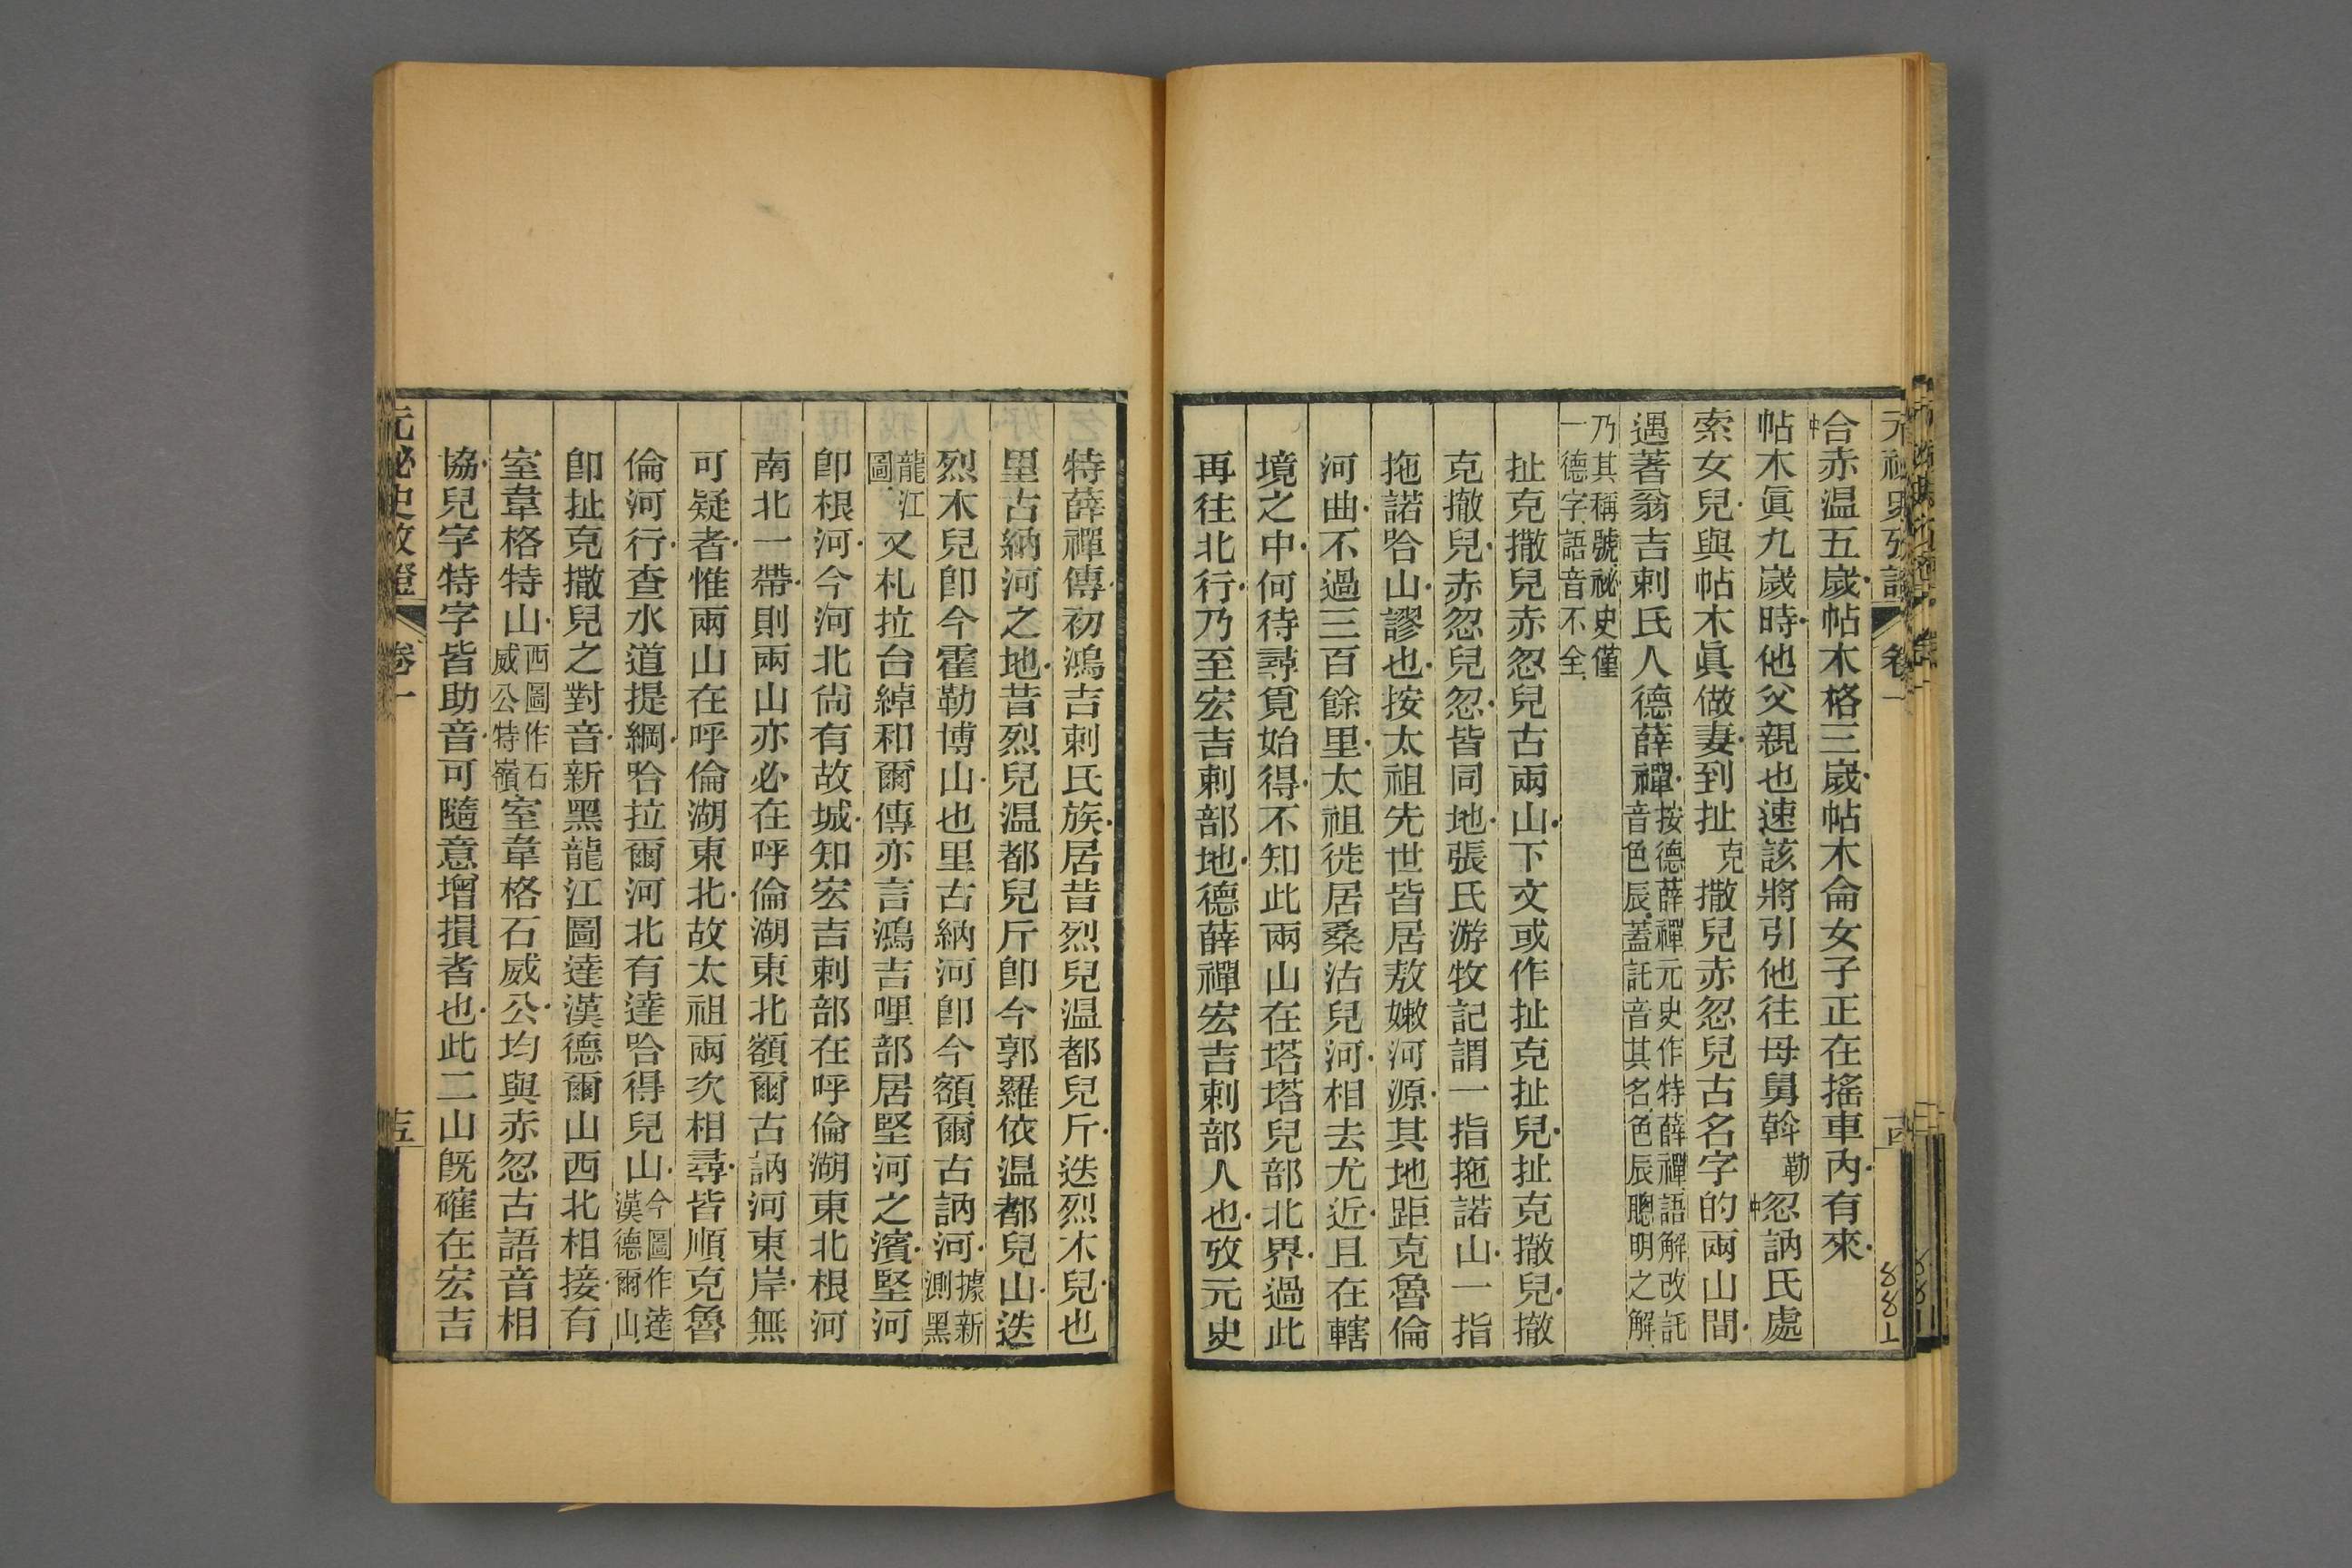 元祕史攷證 卷一 十四
88上
合赤温五歲帖木格三歲帖木侖女子正在搖車內有來
中
帖木眞九歲時他父親也速該將引他往母舅斡勒忽訥氏處
中
索女兒與帖木眞做妻到扯克撒兒赤忽兒古名字的兩山間
遇著翁吉剌氏人德薛禪按德薛禪元史作特薛禪語解改託
音色辰蓋託音其名色辰聰明之解
乃其稱號祕史僅
一德字語音不全
扯克撒兒赤忽兒古兩山下文或作扯克扯兒扯克撤兒撤
克撤兒赤忽兒忽皆同地張氏游牧記謂一指拖諾山一指
拖諾哈山謬也按太祖先世皆居敖嫩河源其地距克魯倫
河曲不過三百餘里太祖徙居桑沽兒河相去尤近且在轄
境之中何待尋覓始得不知此兩山在塔塔兒部北界過此
再往北行乃至宏吉剌部地德薛禪宏吉剌部人也攷元史
特薛禪傳初鴻吉剌氏族居昔烈兒温都兒斤迭烈木兒也
里古納河之地昔烈兒温都兒斤卽今郭羅依温都兒山迭
烈木兒卽今霍勒博山也里古納河卽今額爾古訥河據新
測黑
龍江
圖又札拉台綽和爾傳亦言鴻吉哩部居堅河之濱堅河
卽根河今河北尙有故城知宏吉剌部在呼倫湖東北根河
南北一帶則兩山亦必在呼倫湖東北額爾古訥河東岸無
可疑者惟兩山在呼倫湖東北故太祖兩次相尋皆順克魯
倫河行查水道提綱哈拉爾河北有達哈得兒山今圖作達
漢德爾山
卽扯克撒兒之對音新黑龍江圖達漢德爾山西北相接有
室韋格特山西圖作石
威公特嶺室韋格石威公均與赤忽古語音相
協兒字特字皆助音可隨意增損者也此二山旣確在宏吉
元祕史攷證 卷一 十五